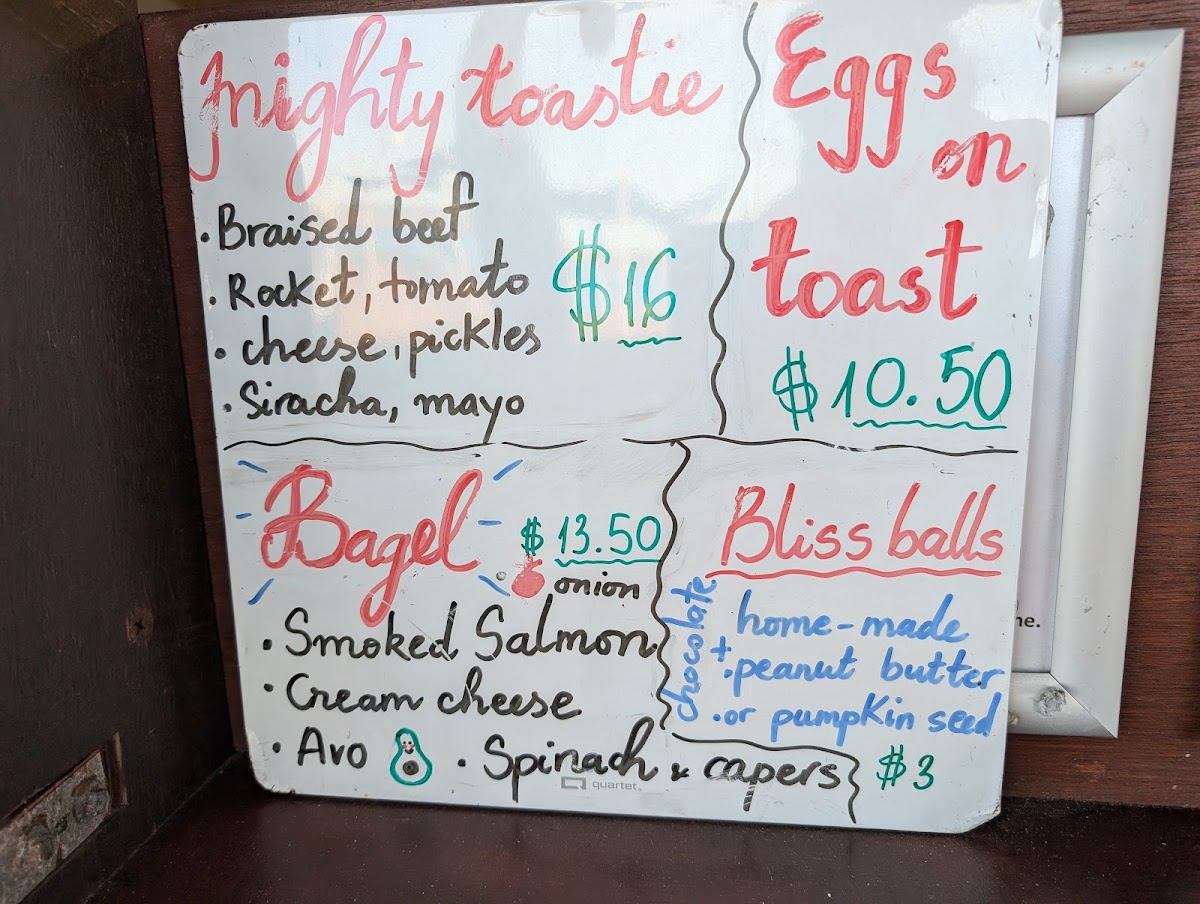 mighty toastie
• Braised beef
• Rocket, tomato
• cheese, pickles
• Siracha, mayo
$16
Eggs
on
toast
$10.50
Bagel
$13.50
onion
• Smoked Salmon
• Cream cheese
• Avo • Spinach & capers
Bliss balls
chocolate +
home-made
• peanut butter
• or pumpkin seed
$3
quartet
ne.